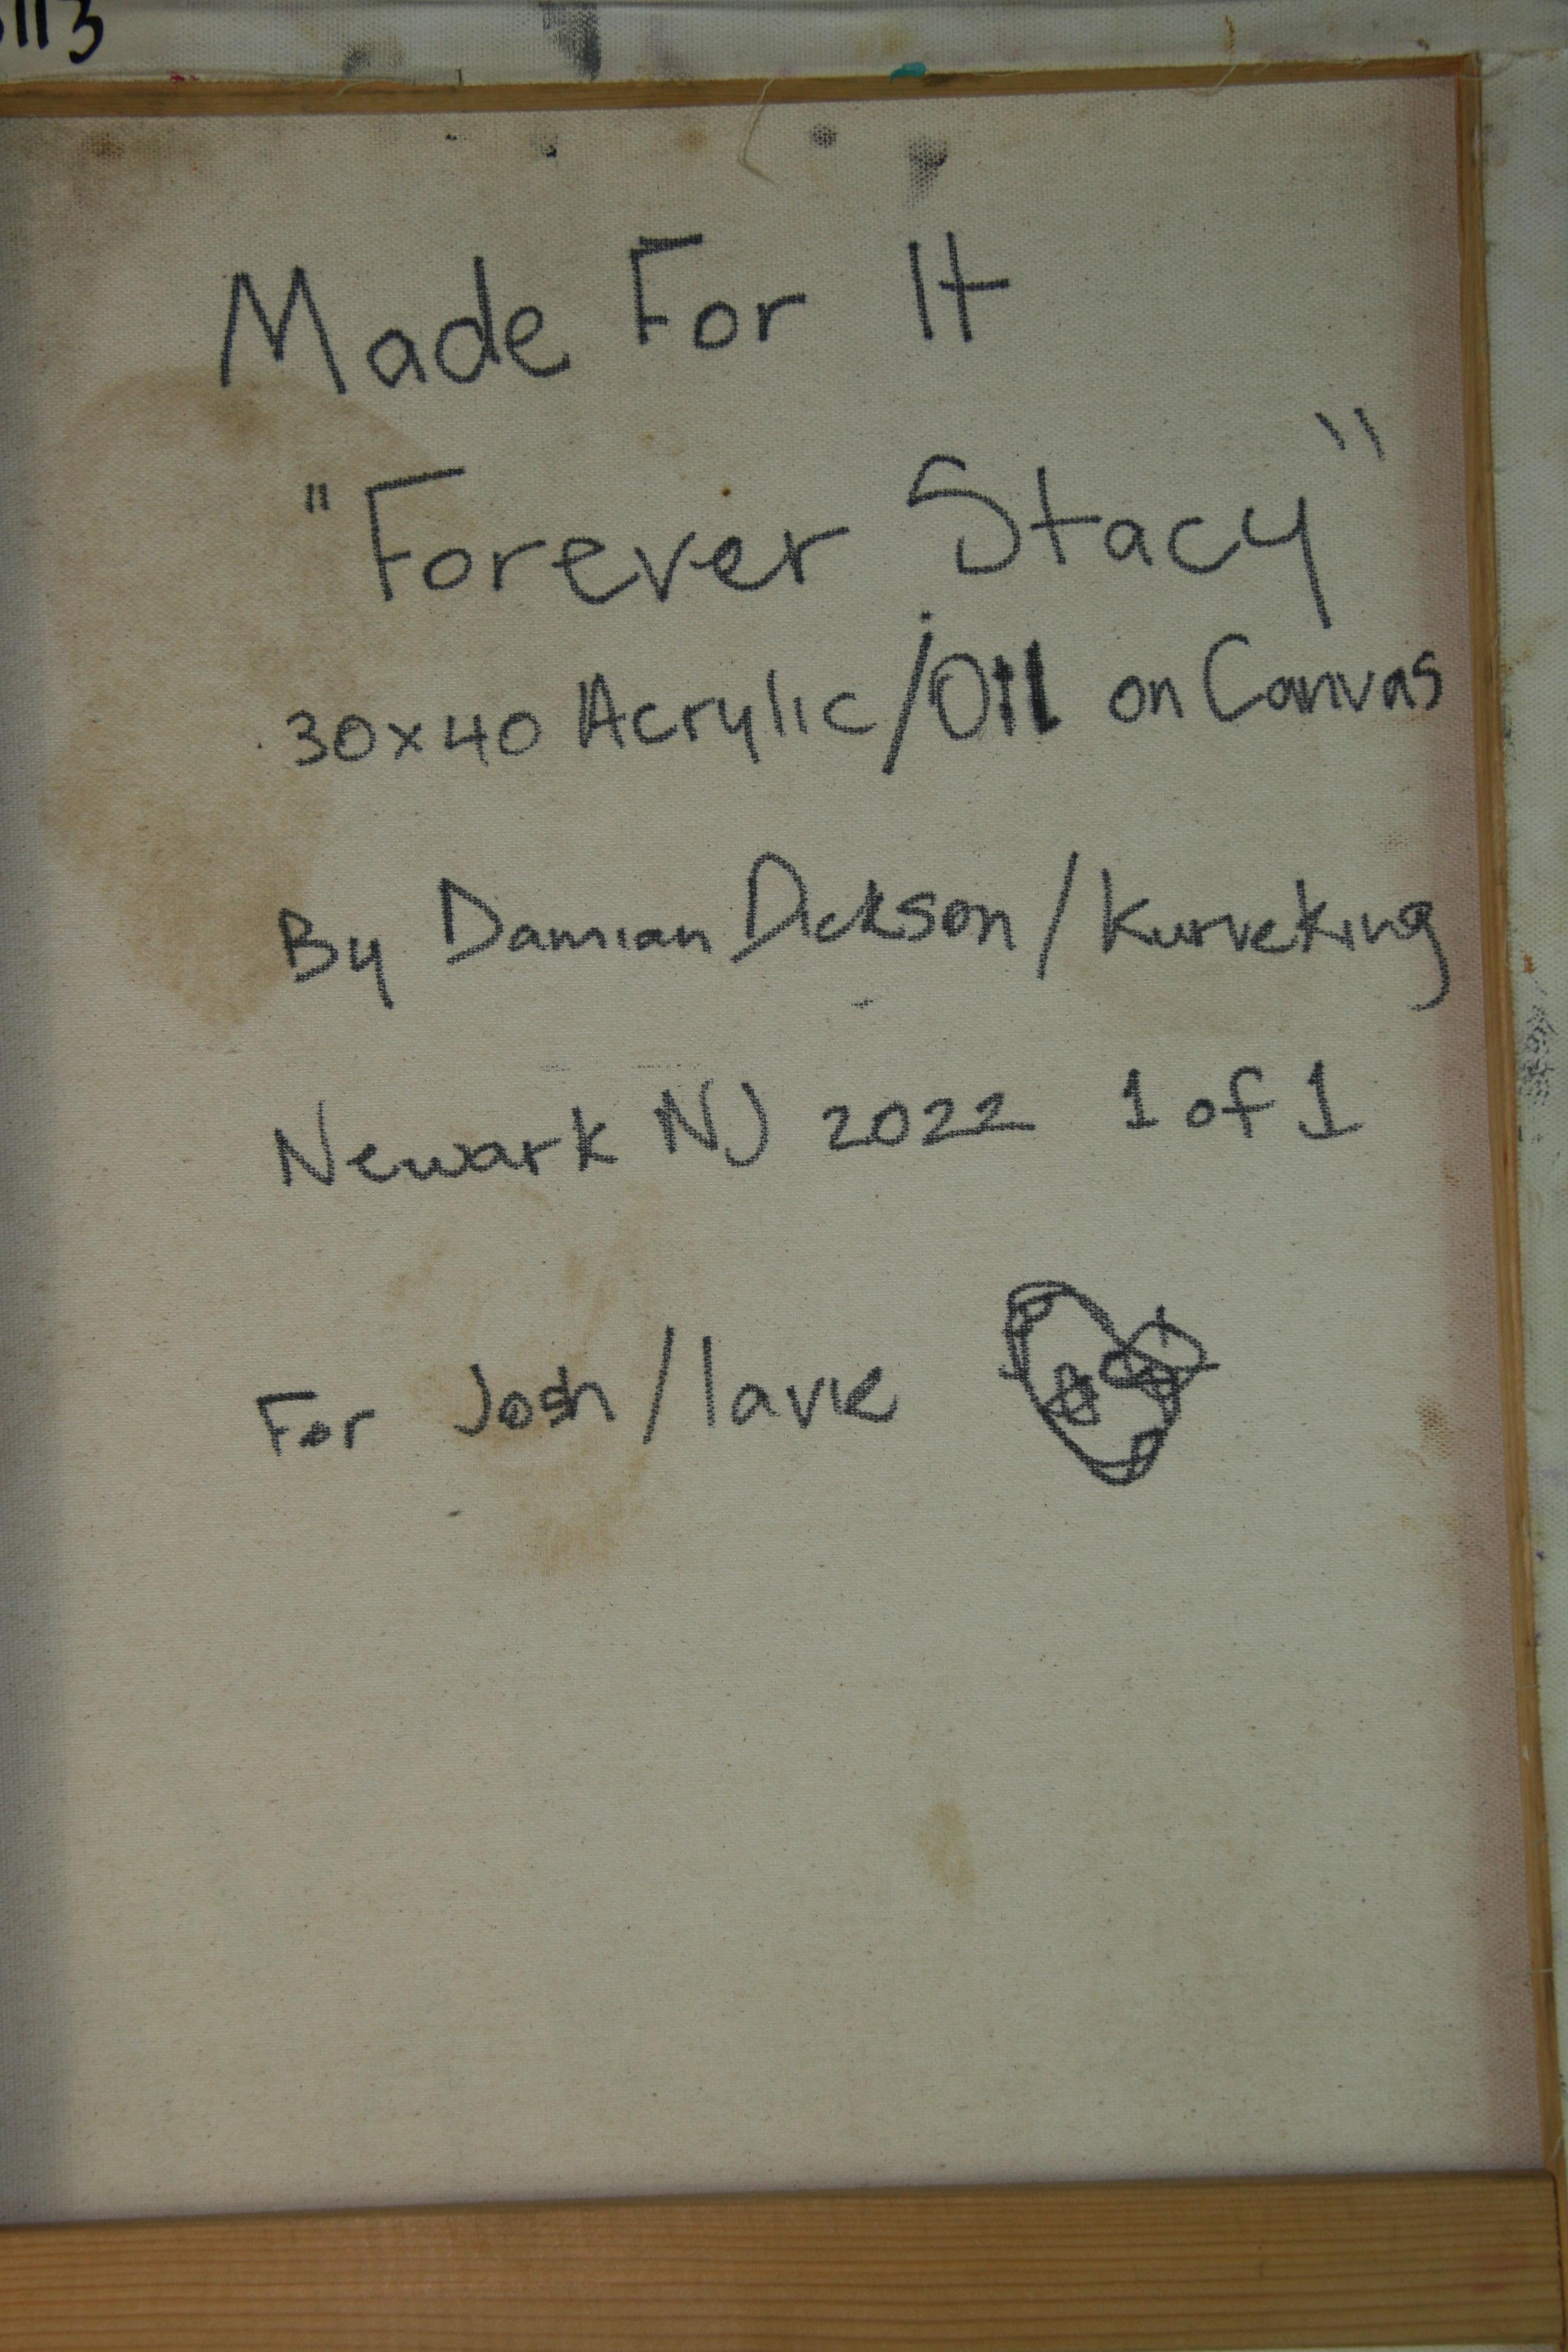 Made For It
"Forever Stacy"
30x40 Acrylic/Oil on Canvas
By Damian Dickson/Kurveking
Newark NJ 2022 1 of 1
For Josh/lavie